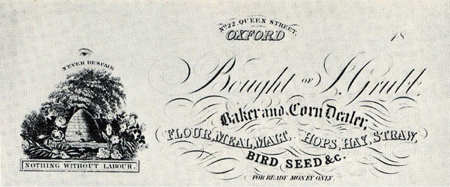 No. 22 QUEEN STREET,
OXFORD
18
NEVER DESPAIR
Bought of J. Grubb.
Baker and Corn Dealer,
FLOUR, MEAL, MALT, HOPS, HAY, STRAW,
BIRD SEED &c.
FOR READY MONEY ONLY.
NOTHING WITHOUT LABOUR.